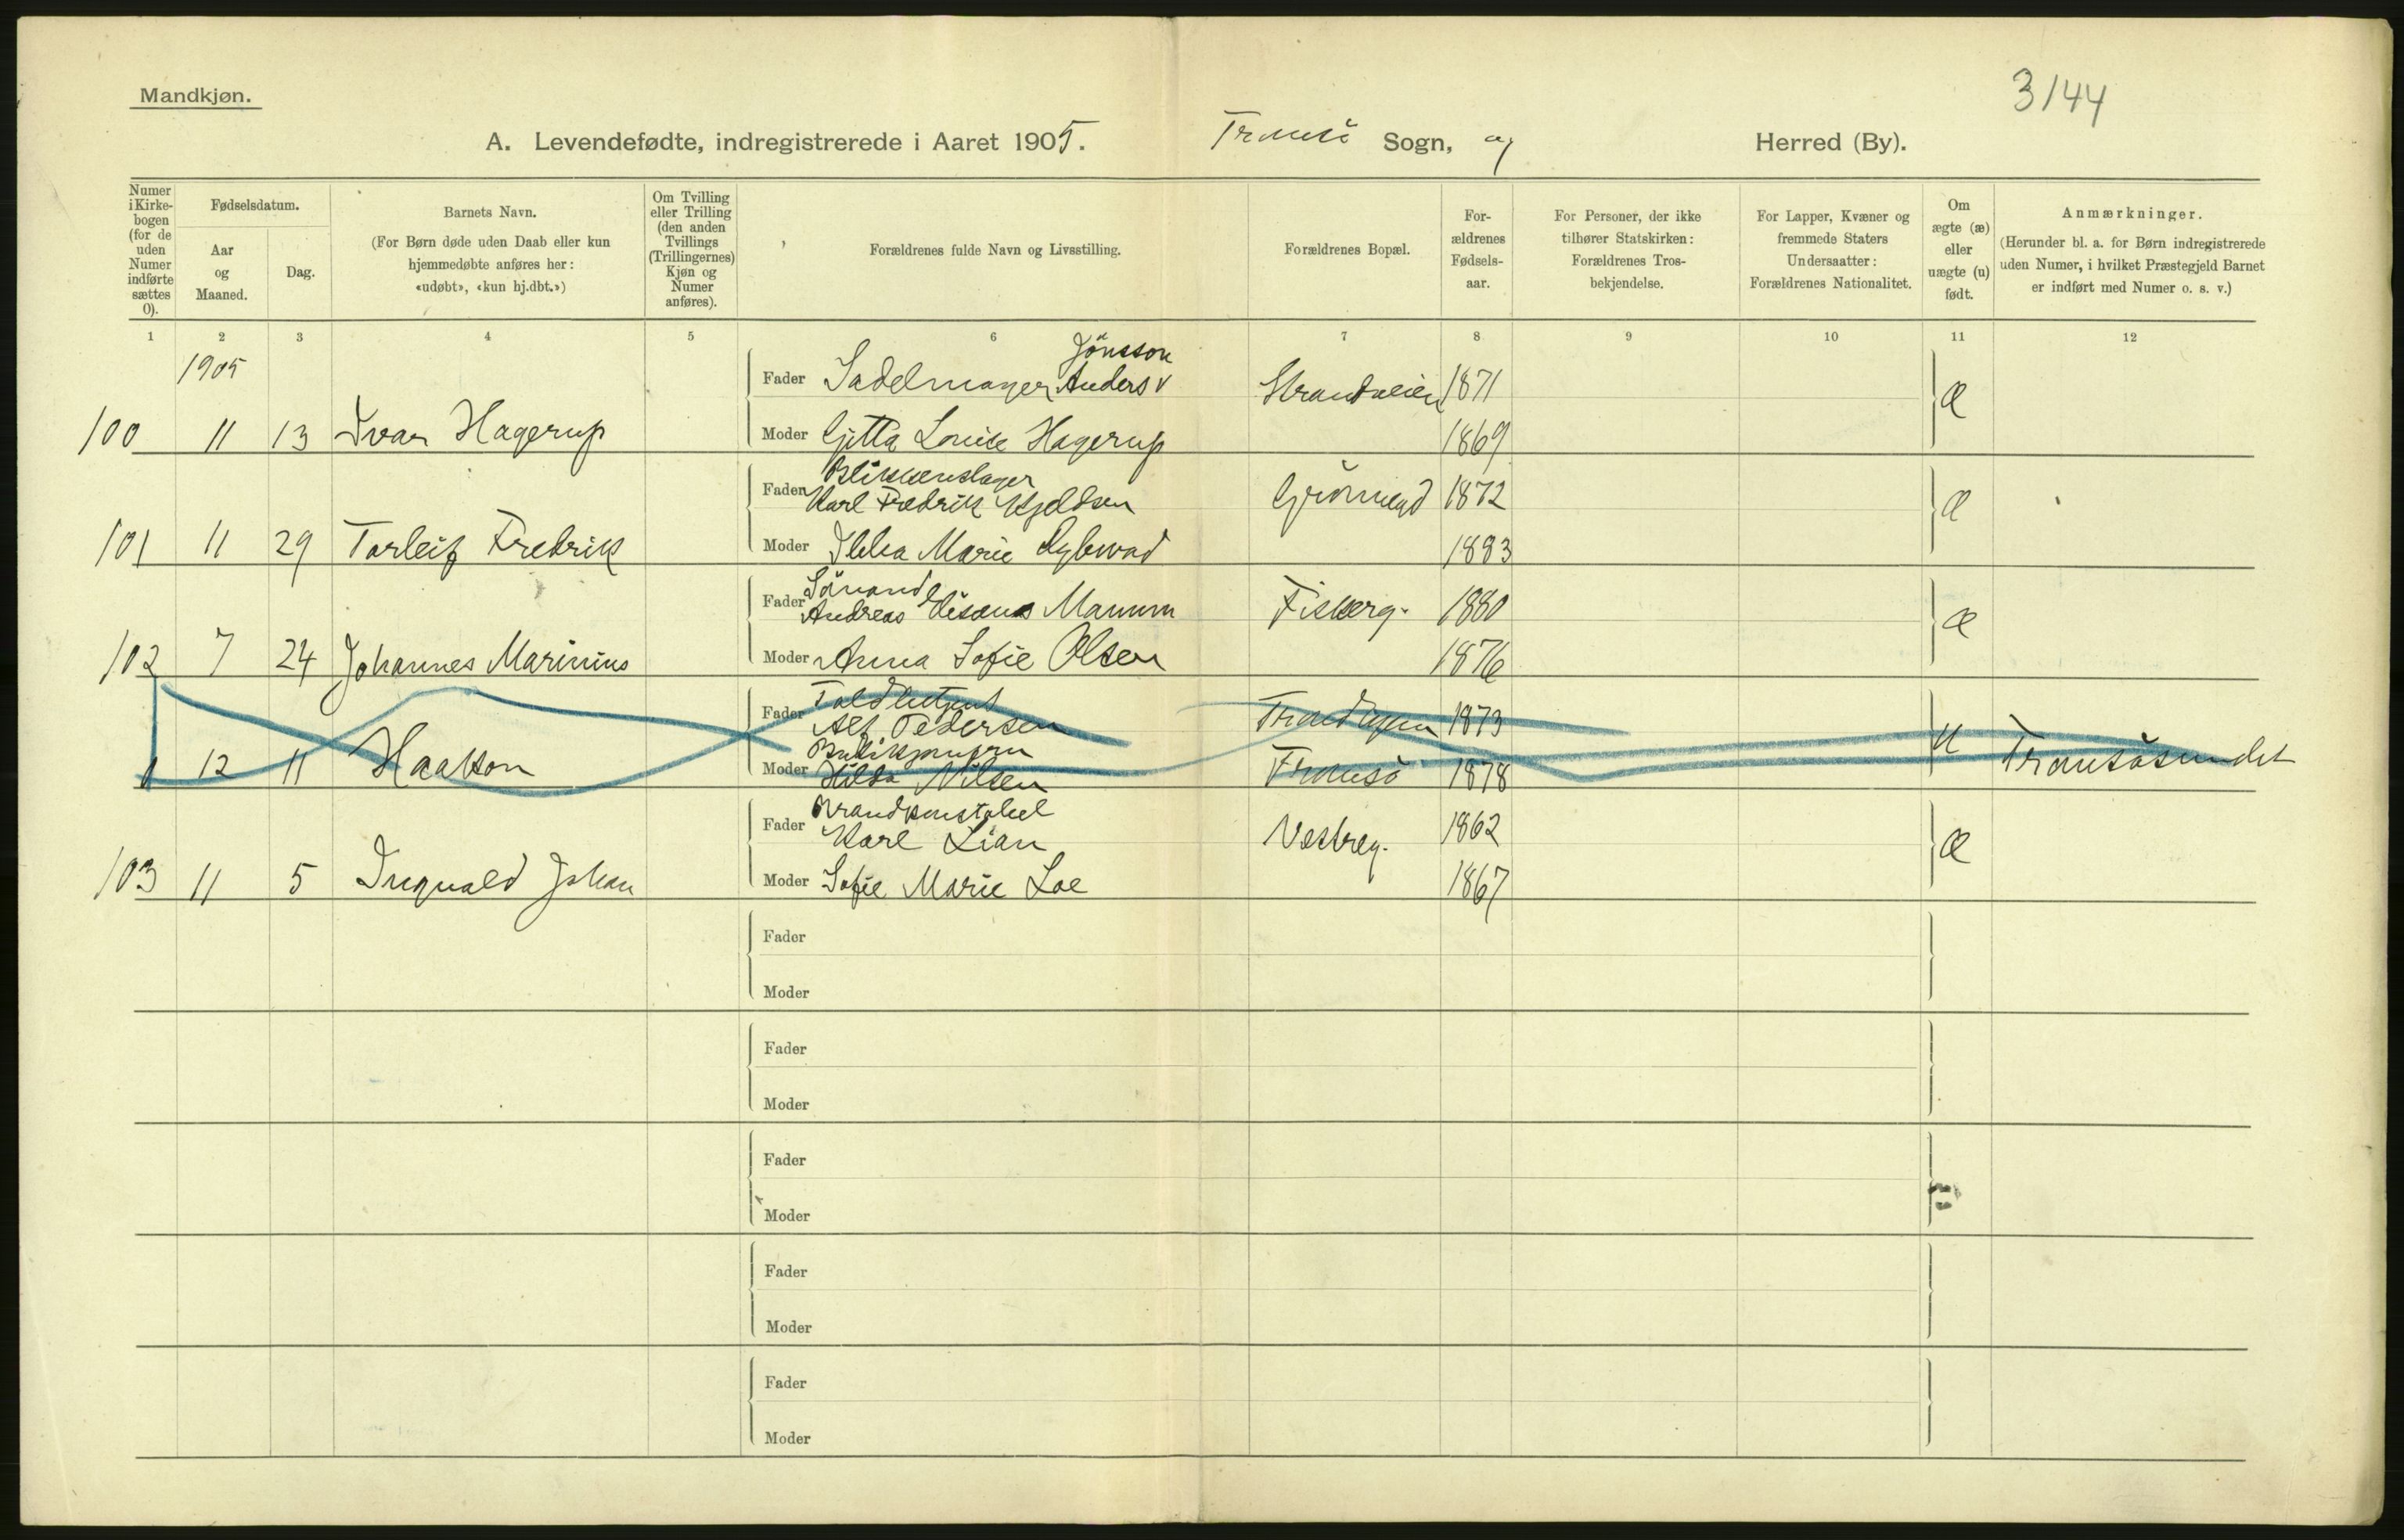 Mandkjøn.
3/44
A. Levendefødte, indregistrerede i Aaret 1905. Tromsö Sogn, og Herred (By).
Numer i Kirke-bogen (for de uden Numer indførte sættes 0).
Fødselsdatum.
Aar og Maaned.
Dag.
Barnets Navn.
(For Børn døde uden Daab eller kun hjemmedøbte anføres her: «udøbt», «kun hj.dbt.»)
Om Tvilling eller Trilling (den anden Tvillings (Trillingernes) Kjøn og Numer anføres).
Forældrenes fulde Navn og Livsstilling.
Forældrenes Bopæl.
For-ældrenes Fødsels-aar.
For Personer, der ikke tilhører Statskirken: Forældrenes Tros-bekjendelse.
For Lapper, Kvæner og fremmede Staters Undersaatter: Forældrenes Nationalitet.
Om ægte (æ) eller uægte (u) født.
Anmærkninger.
(Herunder bl. a. for Børn indregistrerede uden Numer, i hvilket Præstegjeld Barnet er indført med Numer o. s. v.)
1 2 3 4 5 6 7 8 9 10 11 12
1905
Jönsson
Fader Sadelmager Anders Strandveien 1871 Æ
100 11 13 Ivar Hagerup Moder Gitta Louise Hagerup 1869
Blikkenslager
Fader Karl Fredrik Kjeldsen Grönnegd 1872 Æ
101 11 29 Torleif Fredrik Moder Marie Dybwad 1883
Sömand
Fader Andreas Manum Fiskerg. 1880 Æ
102 7 24 Johannes Marinius Moder Anna Sofie Olsen 1876
Fader Alf. Pedersen 1873 u Tromsösundet
0 12 11 Haakon Moder Hilda Nilsen Tromsö 1878
Brandkonstabel
Fader Karl Lian Vestreg. 1862 Æ
103 11 5 Ingvald Johan Moder Sofie Marie Loe 1867
Fader
Moder
Fader
Moder
Fader
Moder
Fader
Moder
Fader
Moder